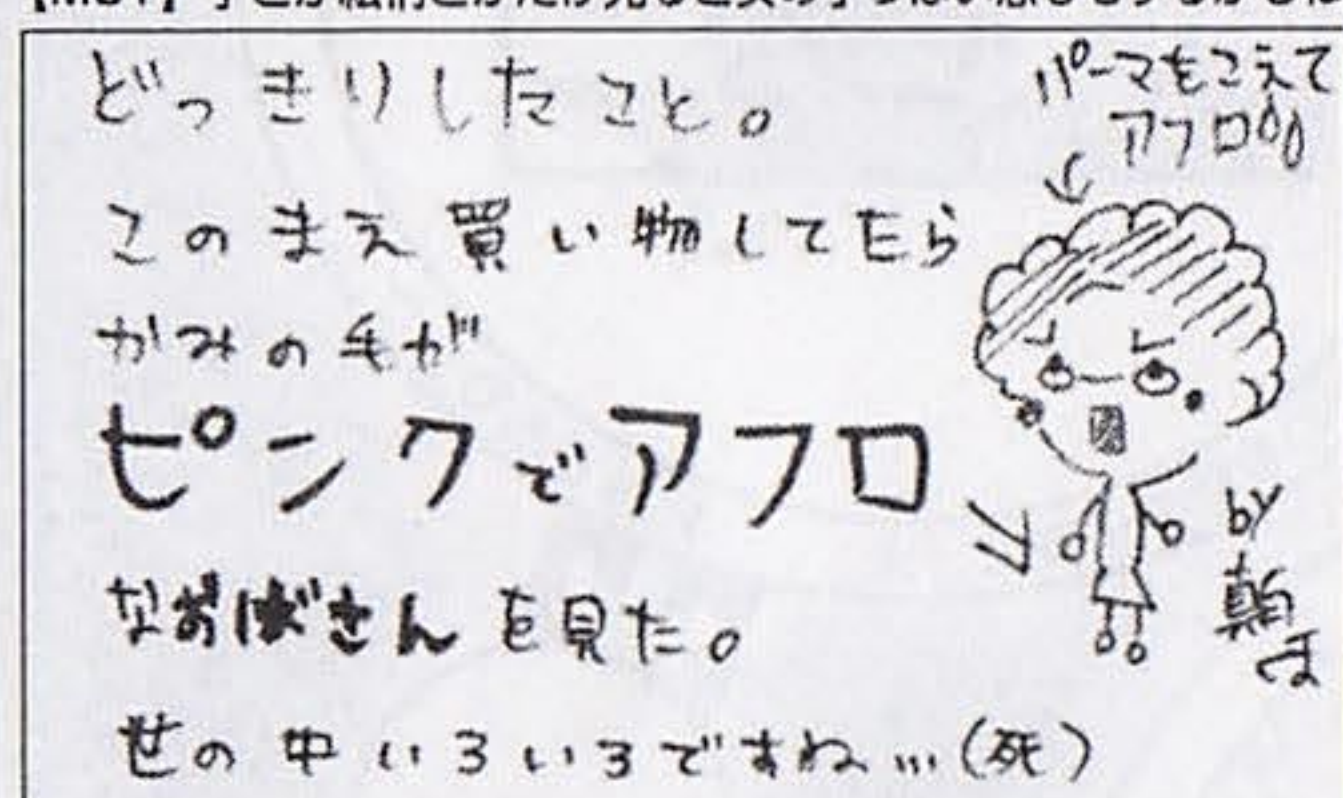 どっきりしたこと。
このまえ買い物してたら
かみの毛が
ピンクでアフロ
なおばさんを見た。
世の中いろいろですね…(死)
パーマをこえて
アフロ
by